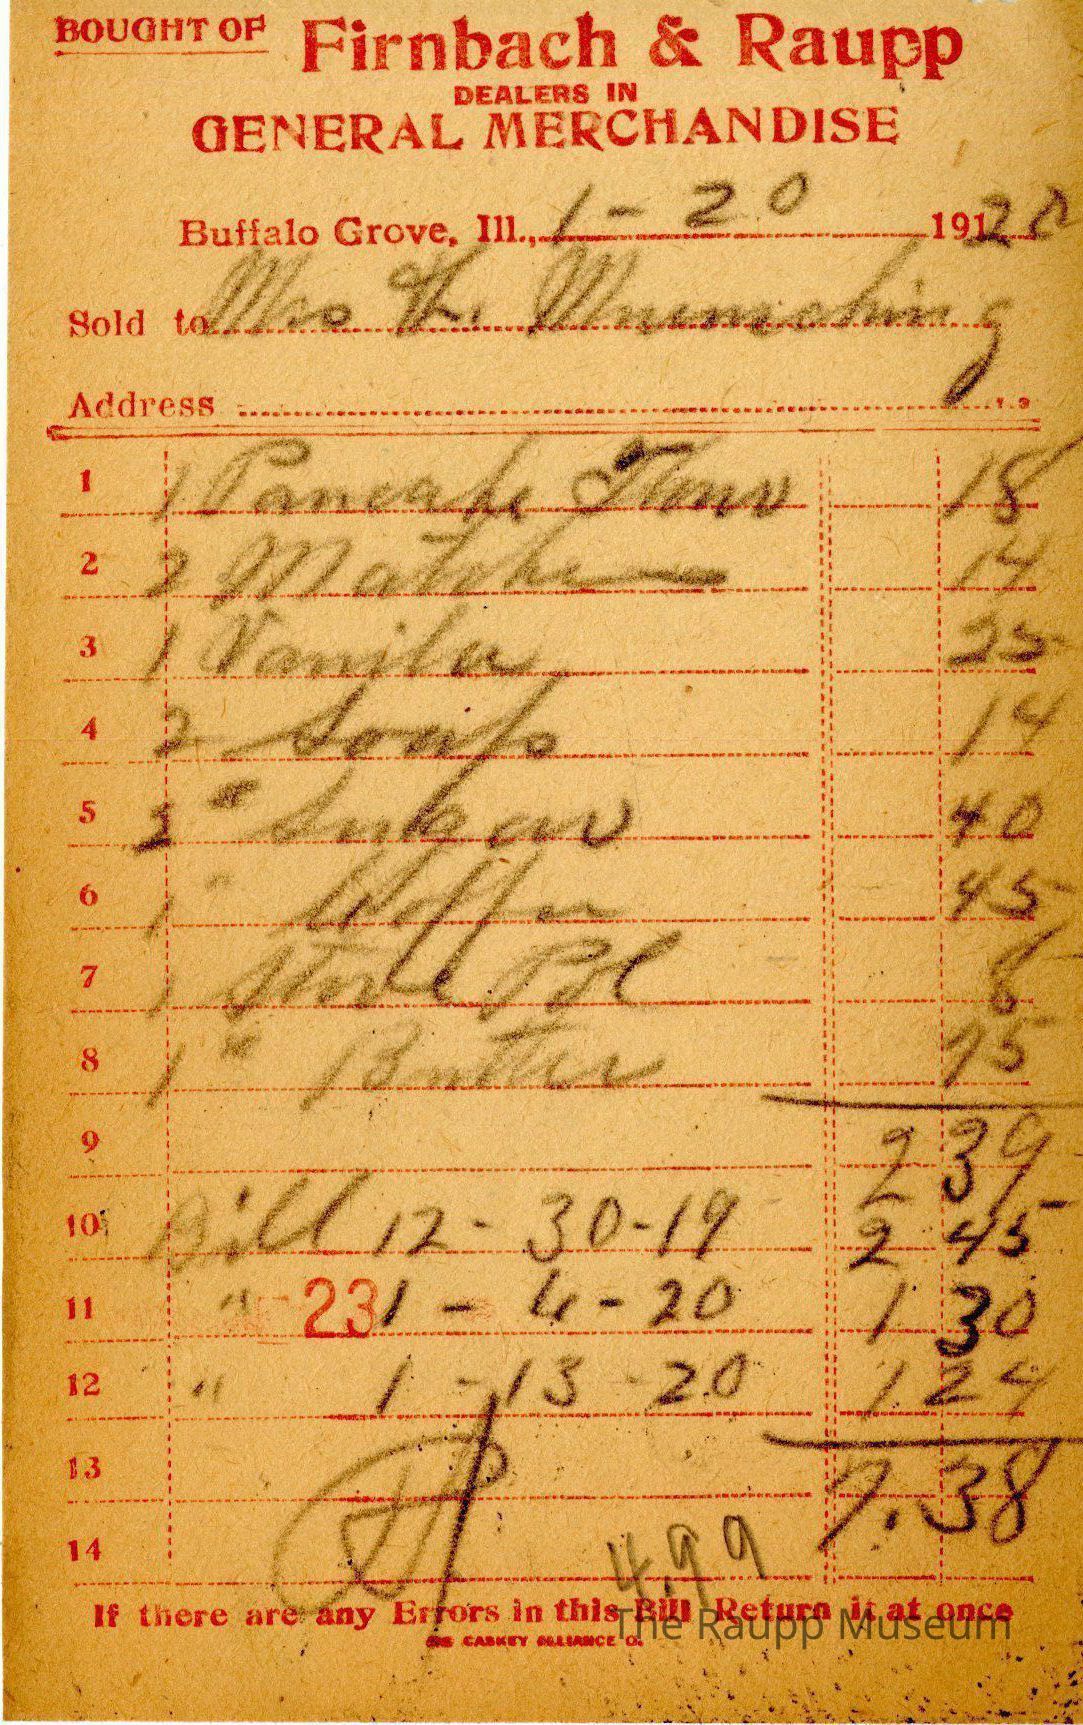 BOUGHT OF Firnbach & Raupp
DEALERS IN
GENERAL MERCHANDISE
Buffalo Grove, Ill., 1-20 191 20
Sold to Mrs
Address
1 1 Pancake Flour 18
2 2 Matche 14
3 1 Vanila 25
4 2 Soaps 14
5 2 " Sukar 40
6 1 " Koffee 45
7 1 Stove Pol 8
8 1 " Butter 75
9 2 39
10 Bill 12-30-19 2 45
11 " 23 1-4-20 1 30
12 " 1-13-20 1 24
13 7.38
14 4.99
If there are any Errors in this Bill Return it at once
CASKEY ALLIANCE O.
The Raupp Museum